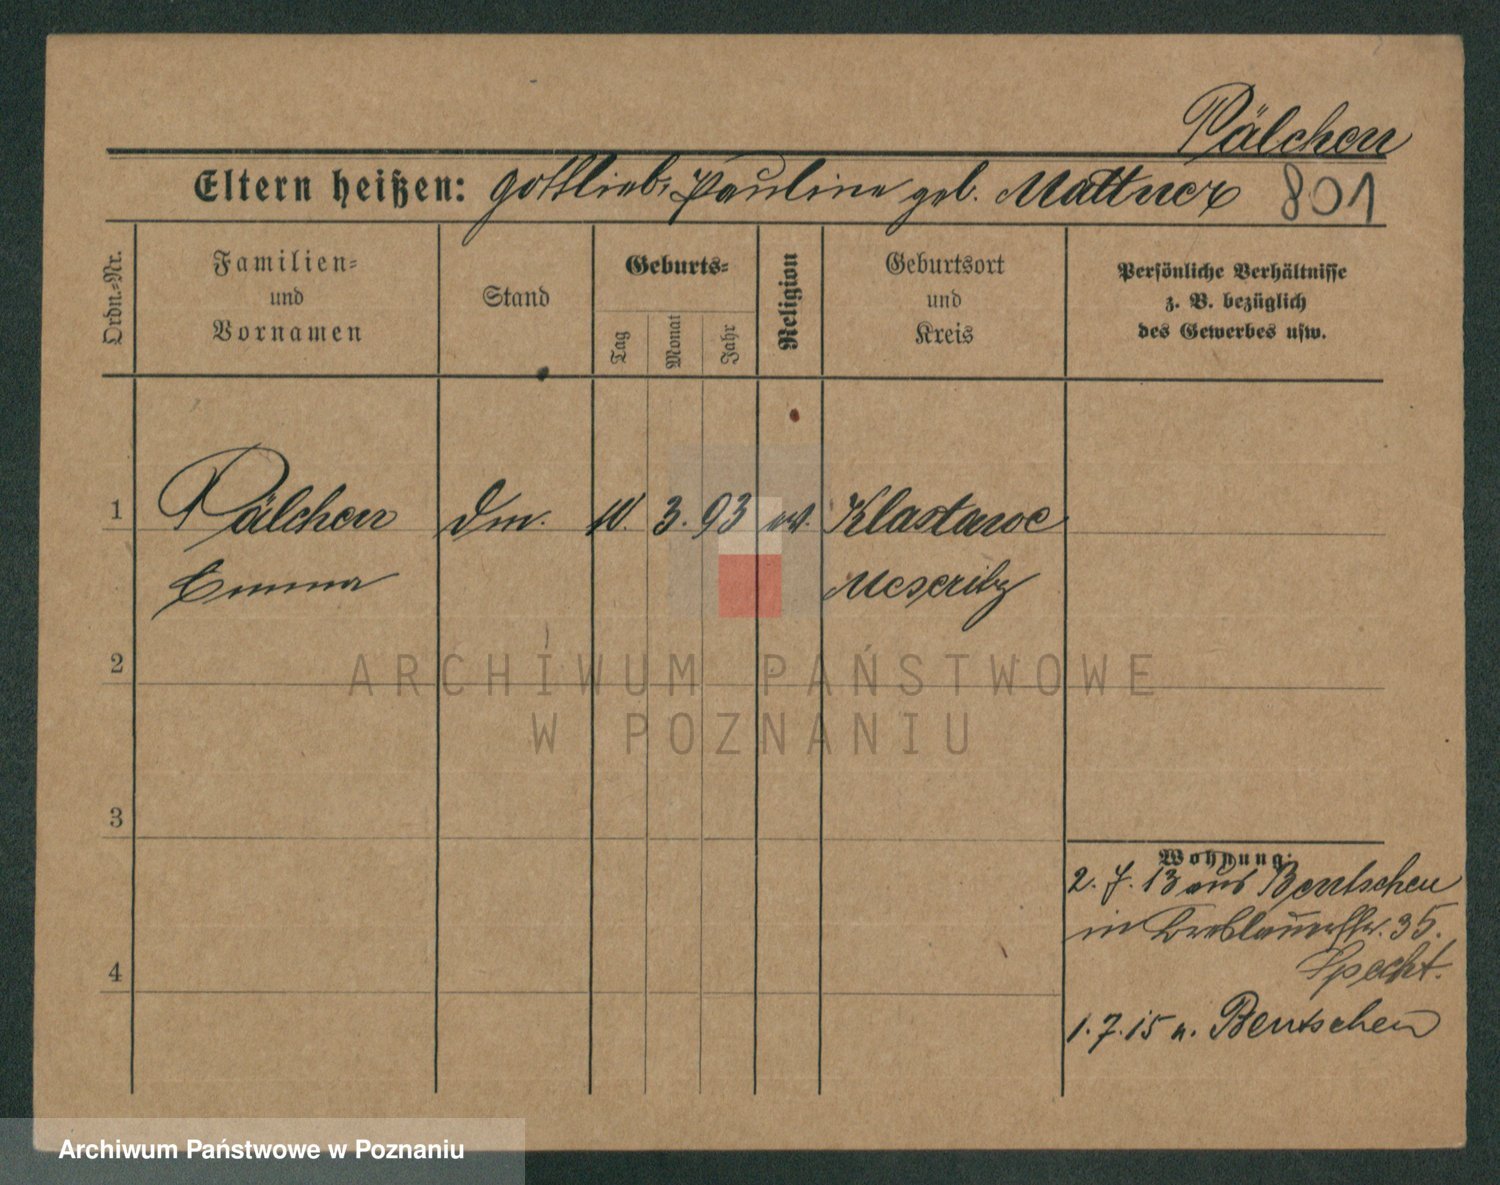 Pälchen
Eltern heißen: Gottlieb, Pauline geb. Mattner 801
Ordn.-Nr.
Familien-
und
Vornamen
Stand
Geburts-
Tag
Monat
Jahr
Religion
Geburtsort
und
Kreis
Persönliche Verhältnisse
z. B. bezüglich
des Gewerbes usw.
1 Pälchen 3. 93 ev. Klastawe
Emma Meseritz
2
ARCHIWUM PAŃSTWOWE
W POZNANIU
3
Wohnung:
2. 7. 13 aus Bentschen
in Breslauerstr. 35.
Specht.
4
1. 7. 15 n. Bentschen
Archiwum Państwowe w Poznaniu